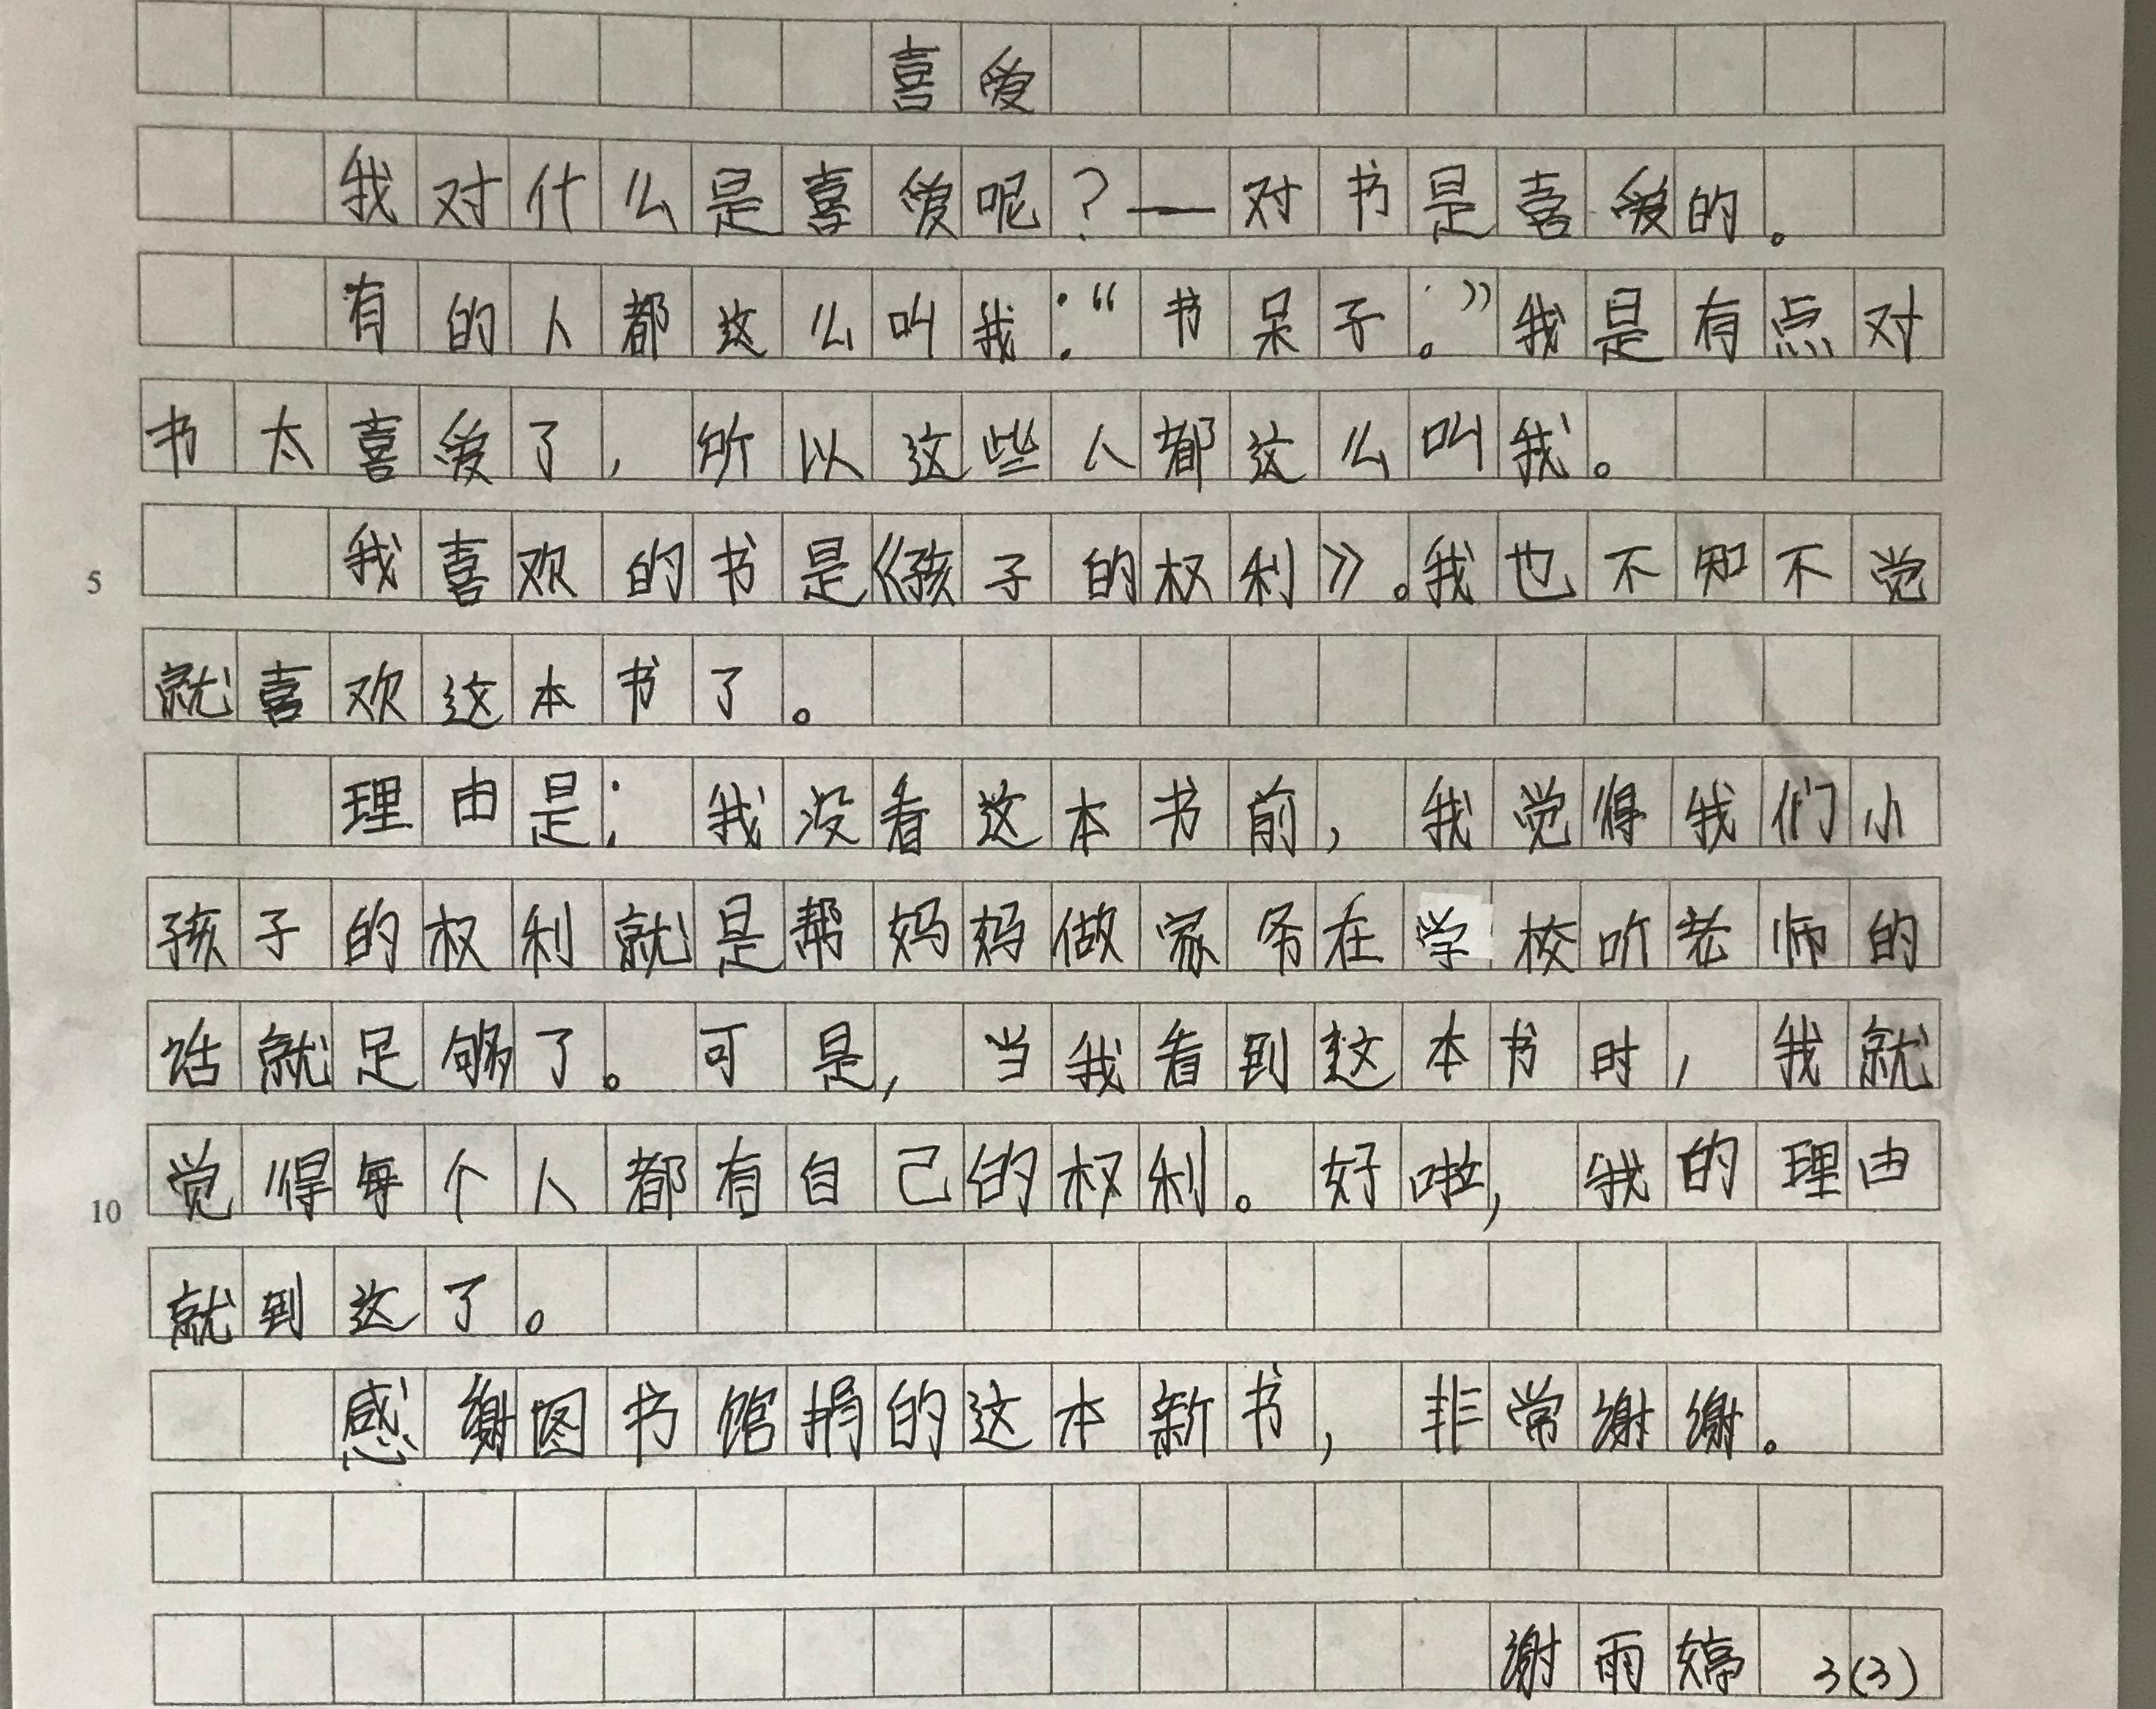 喜爱
我对什么是喜爱呢?—对书是喜爱的。
有的人都这么叫我:“书呆子。”我是有点对
书太喜爱了,所以这些人都这么叫我。
5 我喜欢的书是《孩子的权利》。我也不知不觉
就喜欢这本书了。
理由是:我没看这本书前,我觉得我们小
孩子的权利就是帮妈妈做家务在学校听老师的
话就足够了。可是,当我看到这本书时,我就
10 觉得每个人都有自己的权利。好啦,我的理由
就到这了。
感谢图书馆捐的这本新书,非常谢谢。
谢雨婷 3(3)